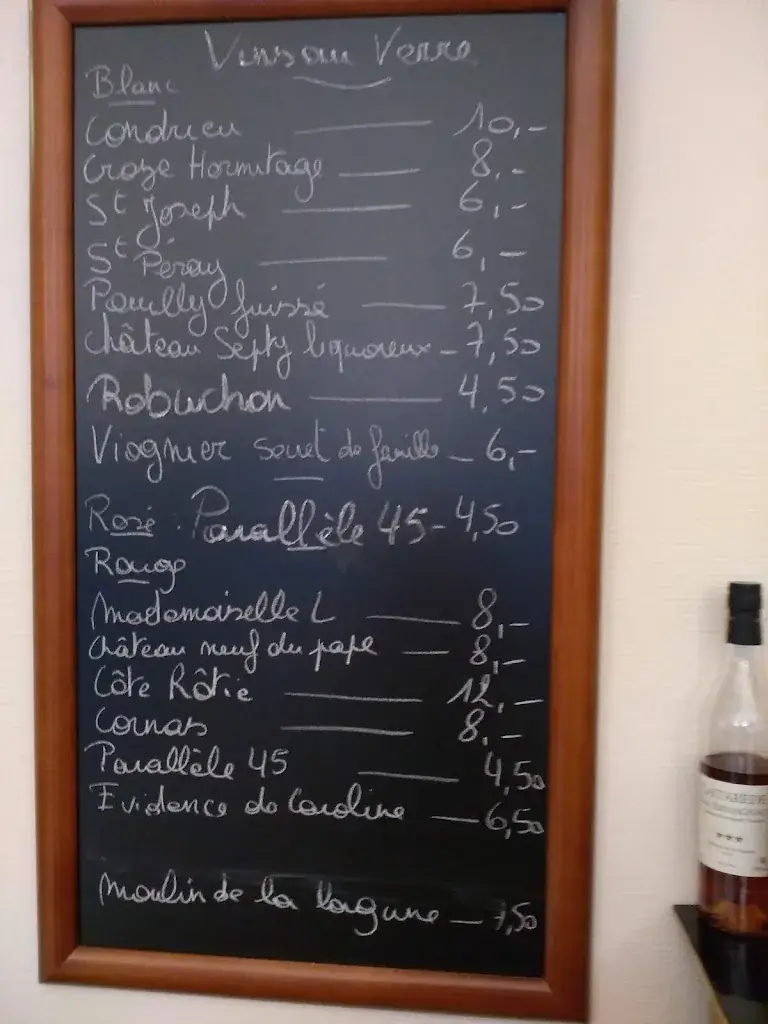 Vins au Verre
Blanc
Condrieu — 10,-
Croze Hermitage — 8,-
St Joseph — 6,-
St Péray — 6,-
Pouilly fuissé — 7,50
Château Septy liquoreux - 7,50
Robuchon — 4,50
Viognier secret de famille - 6,-
Rosé : Parallèle 45 - 4,50
Rouge
Mademoiselle L — 8,-
château neuf du pape — 8,-
Côte Rôtie — 12,-
Cornas — 8,-
Parallèle 45 — 4,50
Evidence de Caroline — 6,50
Moulin de la lagune — 7,50